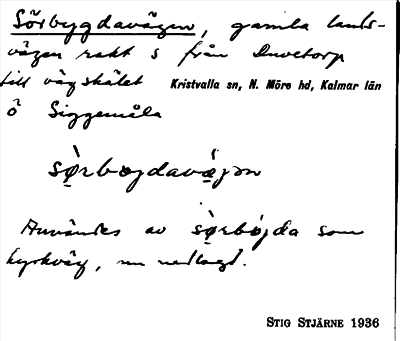 Sörbygdavägen, gamla lands-
vägen rakt s från Duvetorp
till vägskälet Kristvalla sn, N. Möre hd, Kalmar län
ö Siggemåla
sö̀rbogdavä́gən
Användes av sö̀rbógda som
kyrkväg, nu nedlagd.
STIG STJÄRNE 1936